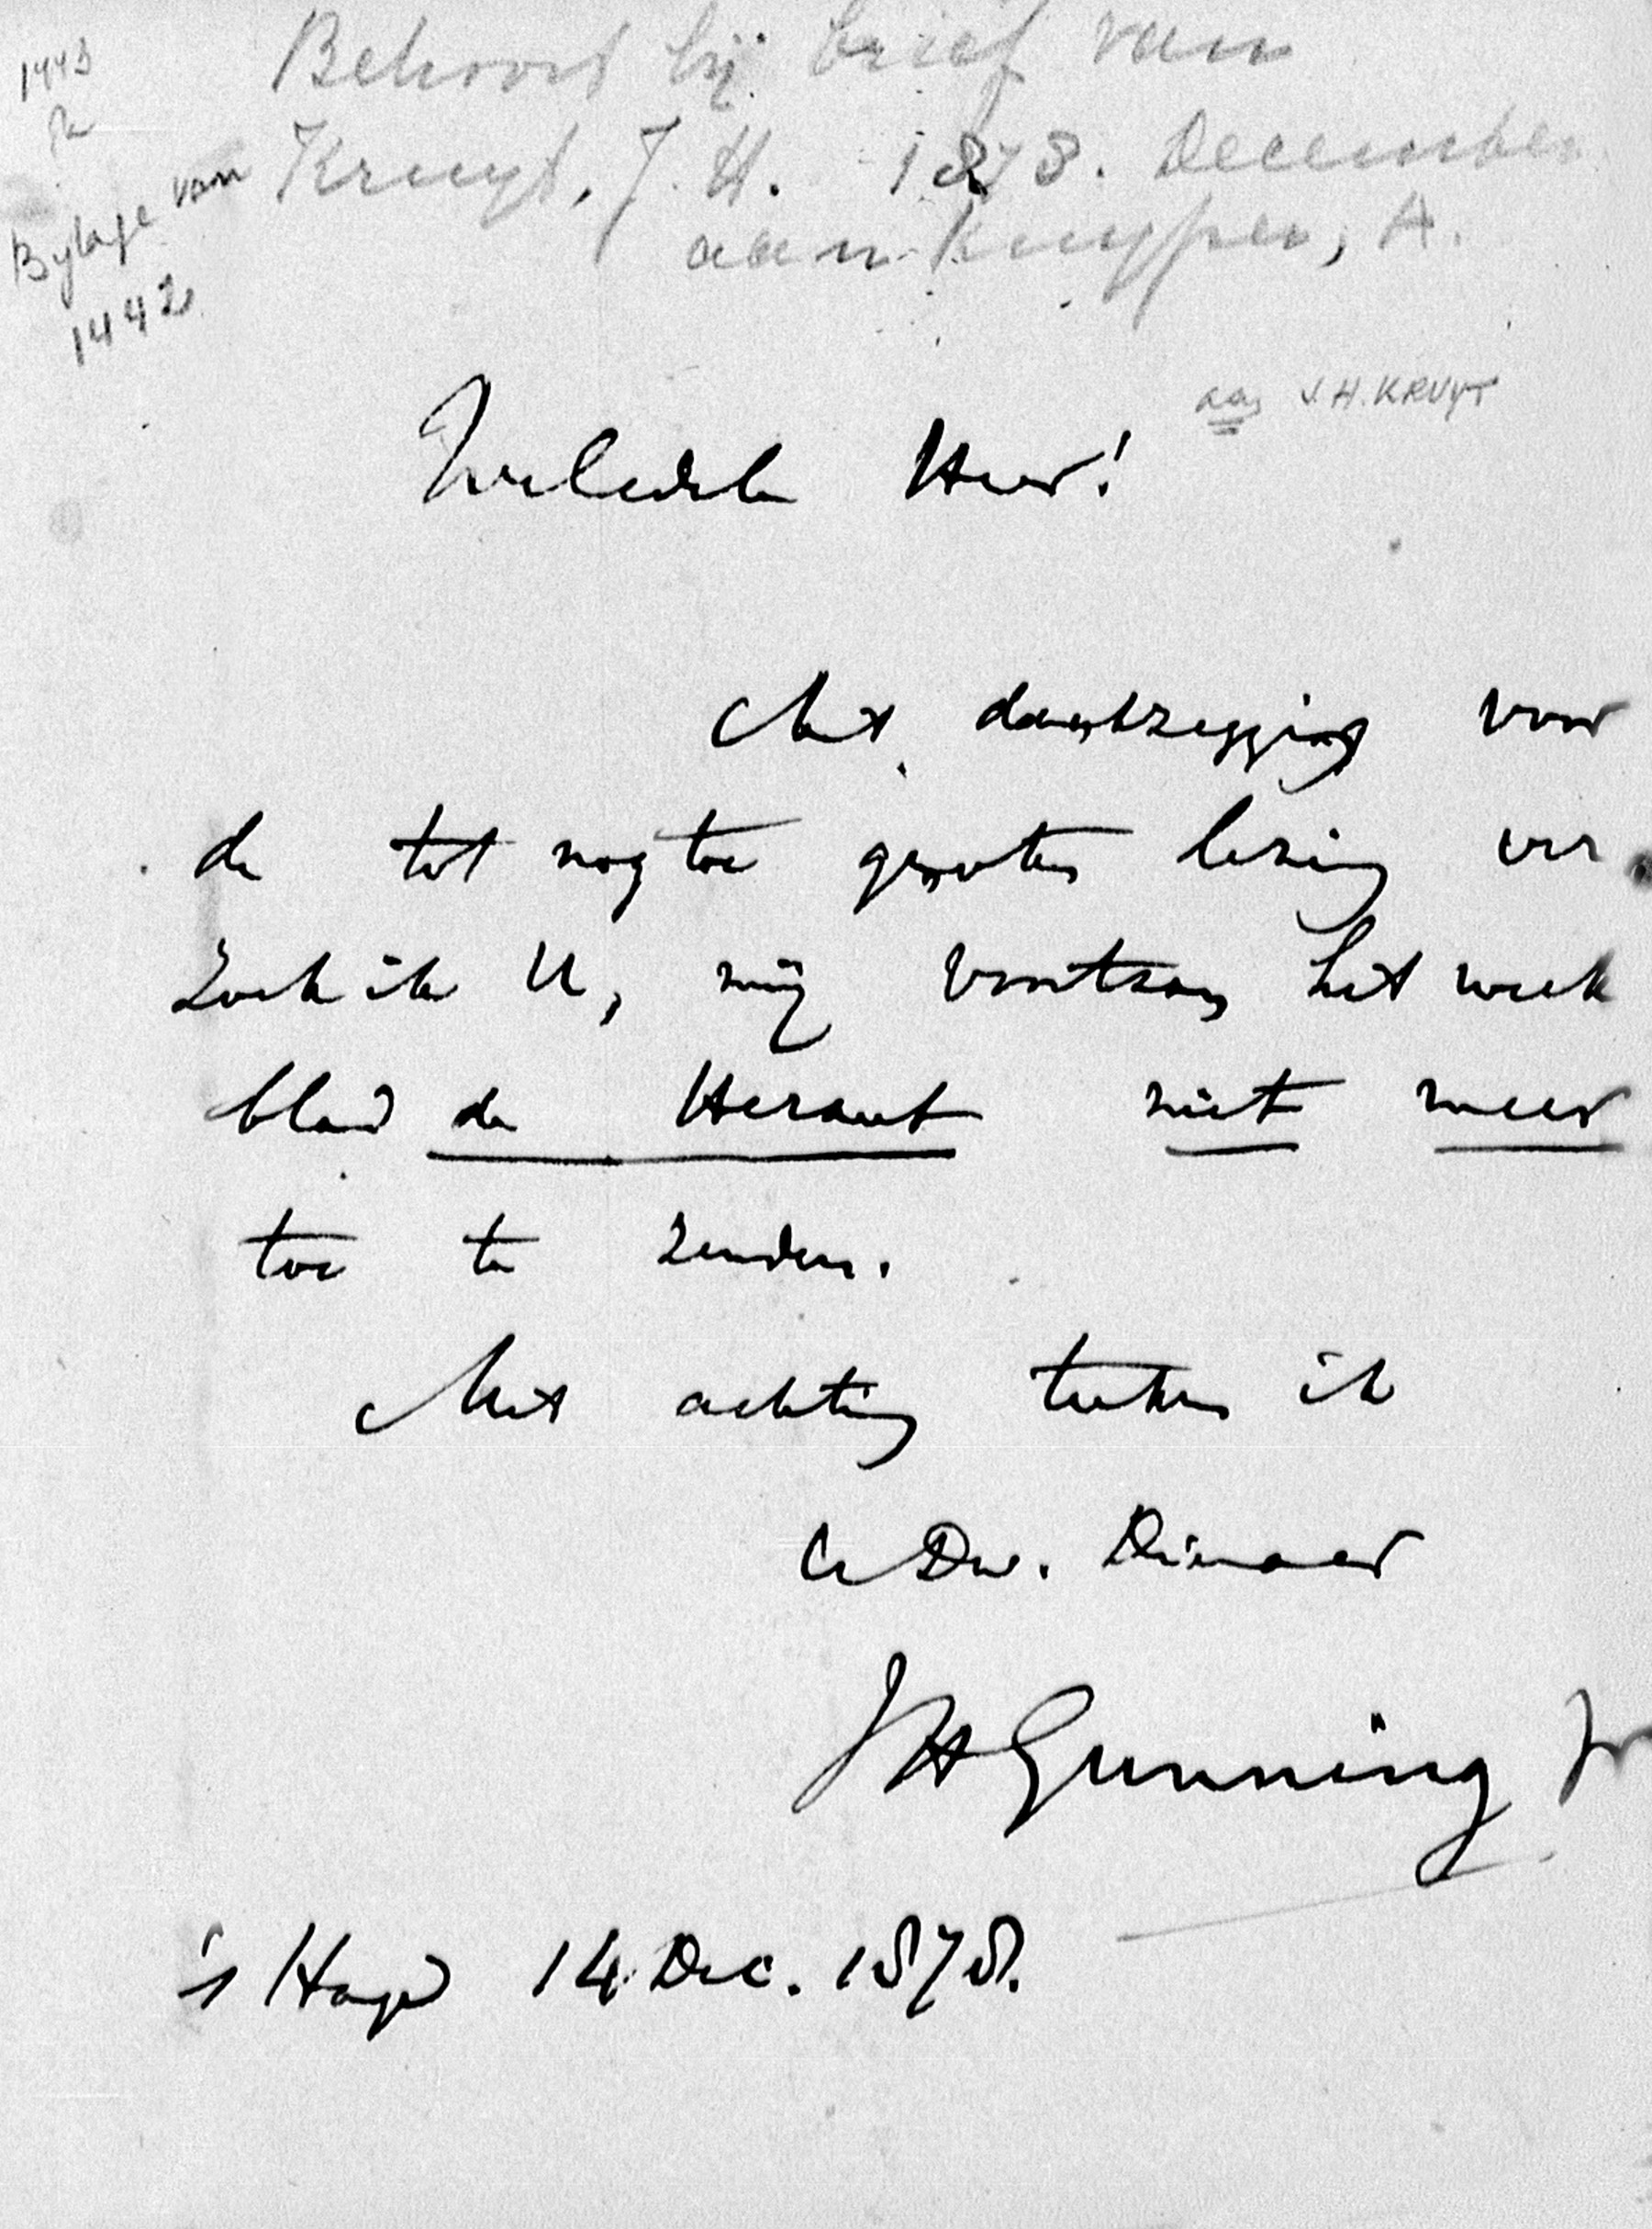 Behoort bij brief van
Kruyt, J. H. 1878. December
aan Kuyper, A.
Bylage van
1442
aan J. H. KRUYT
Weledele Heer!
Met dankzegging voor
de tot nog toe genoten lezing ver
zoek ik U, mij voortaan het week
blad de Heraut niet meer
toe te zenden.
Met achting teeken ik
UwDw. Dienaar
JHGunning Jr
's Hage 14 Dec. 1878.